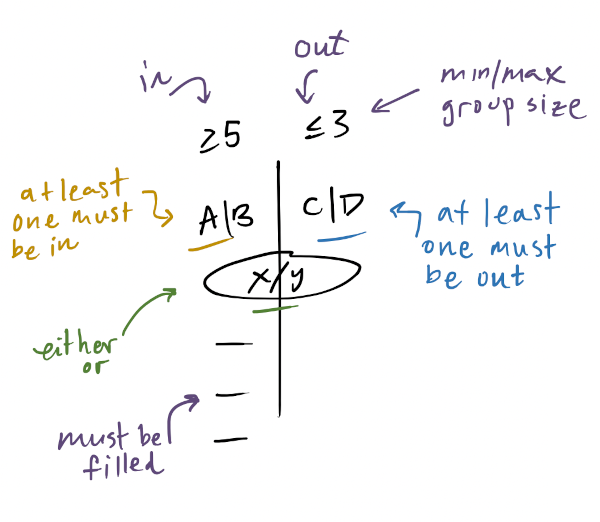 out
in
min/max
group size
≥5
≤3
at least
one must
be in
A|B
C|D
at least
one must
be out
x/y
either
or
must be
filled